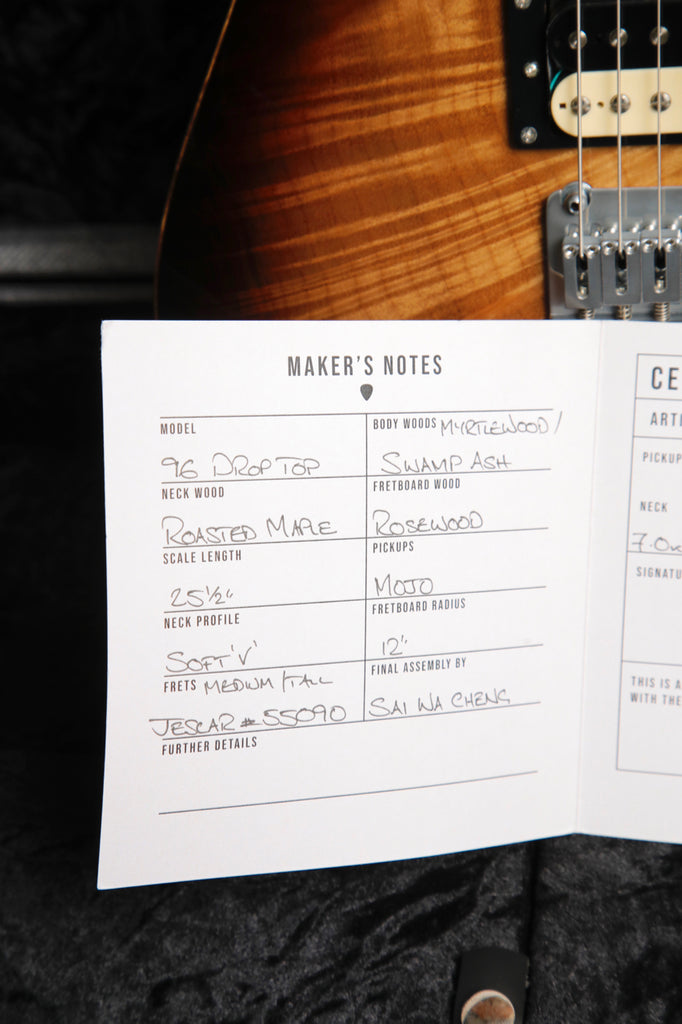 MAKER'S NOTES
MODEL
96 DROP TOP
BODY WOODS MYRTLEWOOD /
SWAMP ASH
NECK WOOD
ROASTED MAPLE
FRETBOARD WOOD
ROSEWOOD
SCALE LENGTH
25½"
PICKUPS
MOJO
NECK PROFILE
SOFT 'V'
FRETBOARD RADIUS
12"
FRETS MEDIUM/TALL
JESCAR #55090
FINAL ASSEMBLY BY
SAI WA CHENG
FURTHER DETAILS
CE
ARTI
PICKUP
NECK
7.0
SIGNATU
THIS IS A
WITH THE